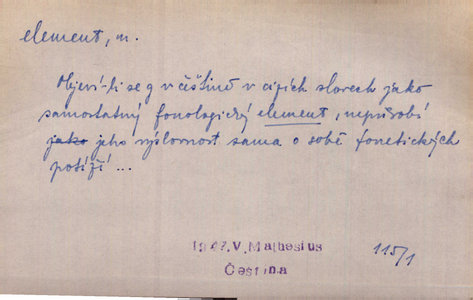 element, m.
Objeví-li se g v češtině v cizích slovech jako
samostatný fonologický element, nepůsobí
jako jeho výslovnost sama o sobě fonetických
potíží ...
1947.V.Mathesius
Čeština
115/1